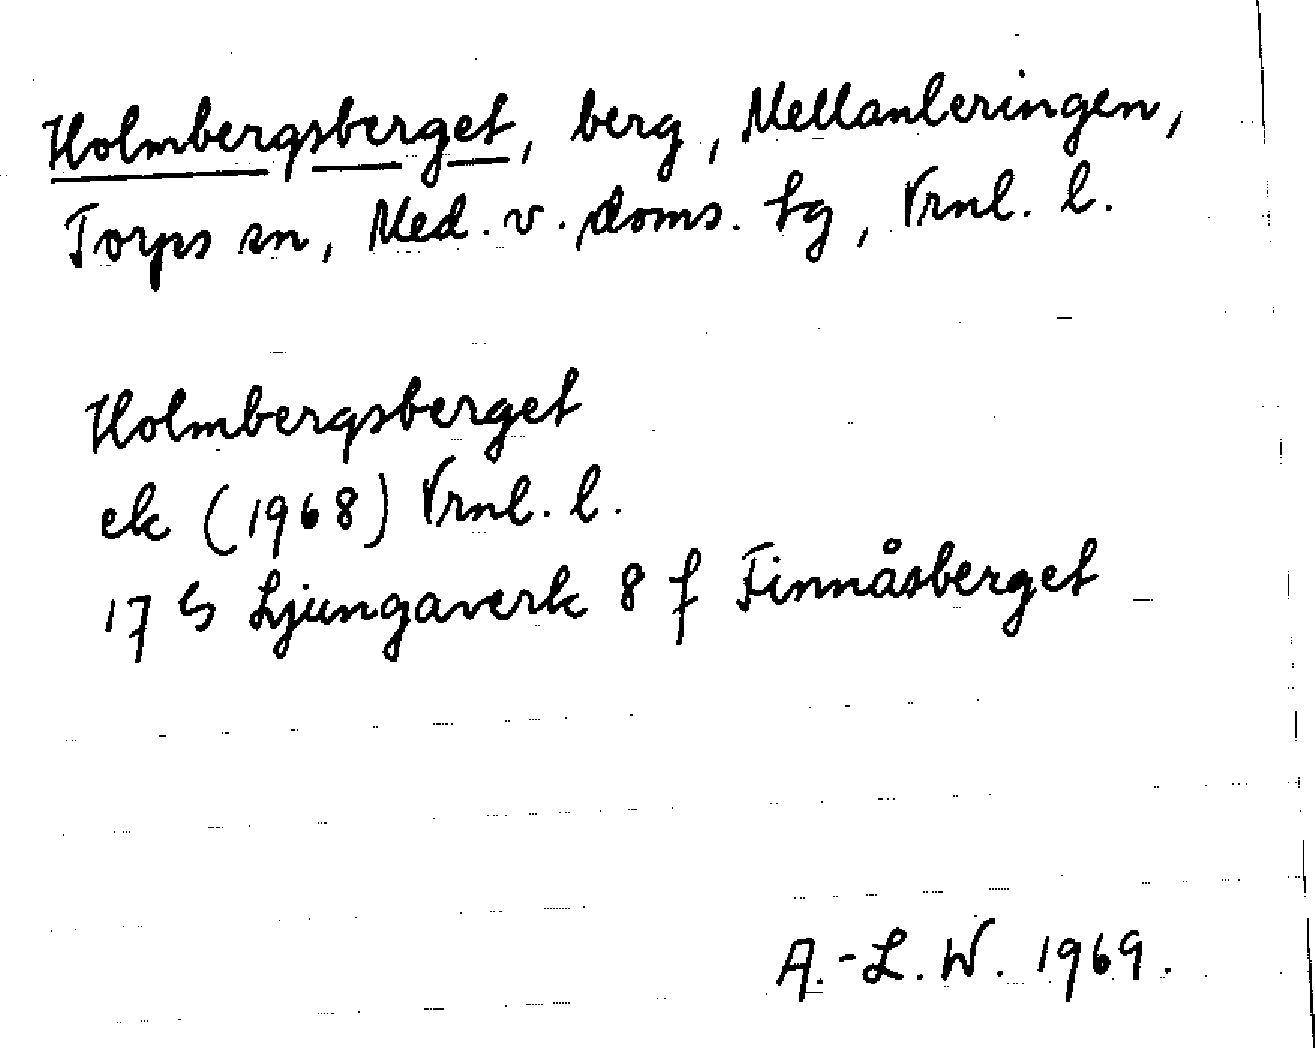 Holmbergsberget, berg, Mellanleringen,
Torps sn, Med. v. doms. tg, Vrnl. l.
Holmbergsberget
ek (1968) Vrnl. l.
17 G Ljungaverk 8 f Finnåsberget
A.-L. W. 1969.